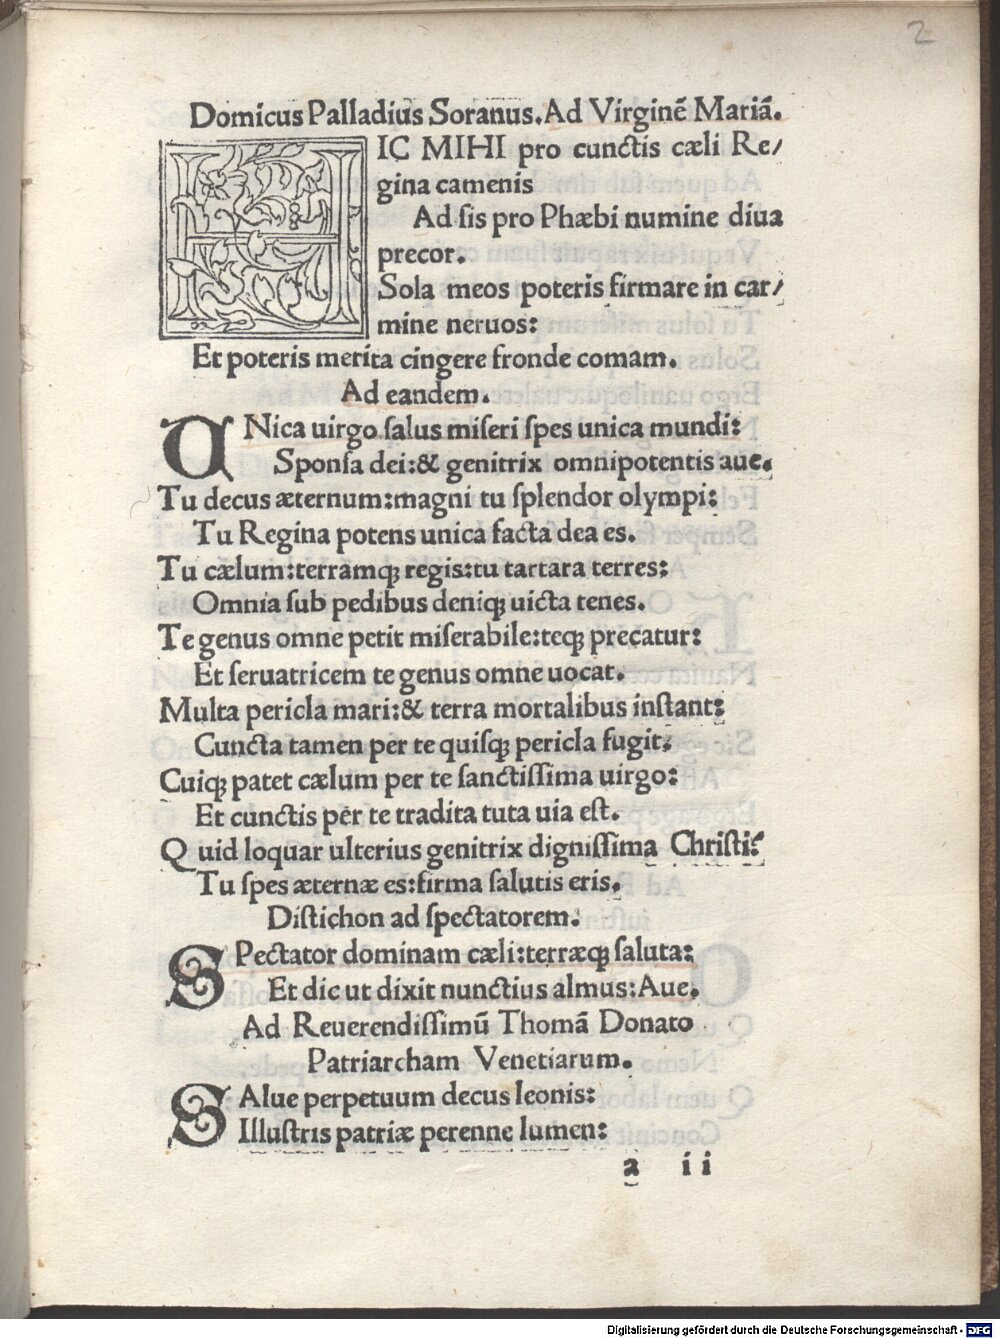 2
Domicus Palladius Soranus. Ad Virginē Mariā.
HIC MIHI pro cunctis cæli Re/
gina camenis
Ad sis pro Phæbi numine diua
precor.
Sola meos poteris firmare in car/
mine neruos:
Et poteris merita cingere fronde comam.
Ad eandem.
UNica uirgo salus miseri spes unica mundi:
Sponsa dei:& genitrix omnipotentis aue.
Tu decus æternum:magni tu splendor olympi:
Tu Regina potens unica facta dea es.
Tu cælum:terramqꝫ regis:tu tartara terres:
Omnia sub pedibus deniqꝫ uicta tenes.
Te genus omne petit miserabile:teqꝫ precatur:
Et seruatricem te genus omne uocat.
Multa pericla mari:& terra mortalibus instant:
Cuncta tamen per te quisqꝫ pericla fugit:
Cuiqꝫ patet cælum per te sanctissima uirgo:
Et cunctis per te tradita tuta uia est.
Quid loquar ulterius genitrix dignissima Christi?
Tu spes æternæ es:firma salutis eris.
Distichon ad spectatorem.
SPectator dominam cæli:terræqꝫ saluta:
Et dic ut dixit nunctius almus:Aue.
Ad Reuerendissimū Thomā Donato
Patriarcham Venetiarum.
SAlue perpetuum decus leonis:
Illustris patriæ perenne lumen:
a ii
Digitalisierung gefördert durch die Deutsche Forschungsgemeinschaft - DFG